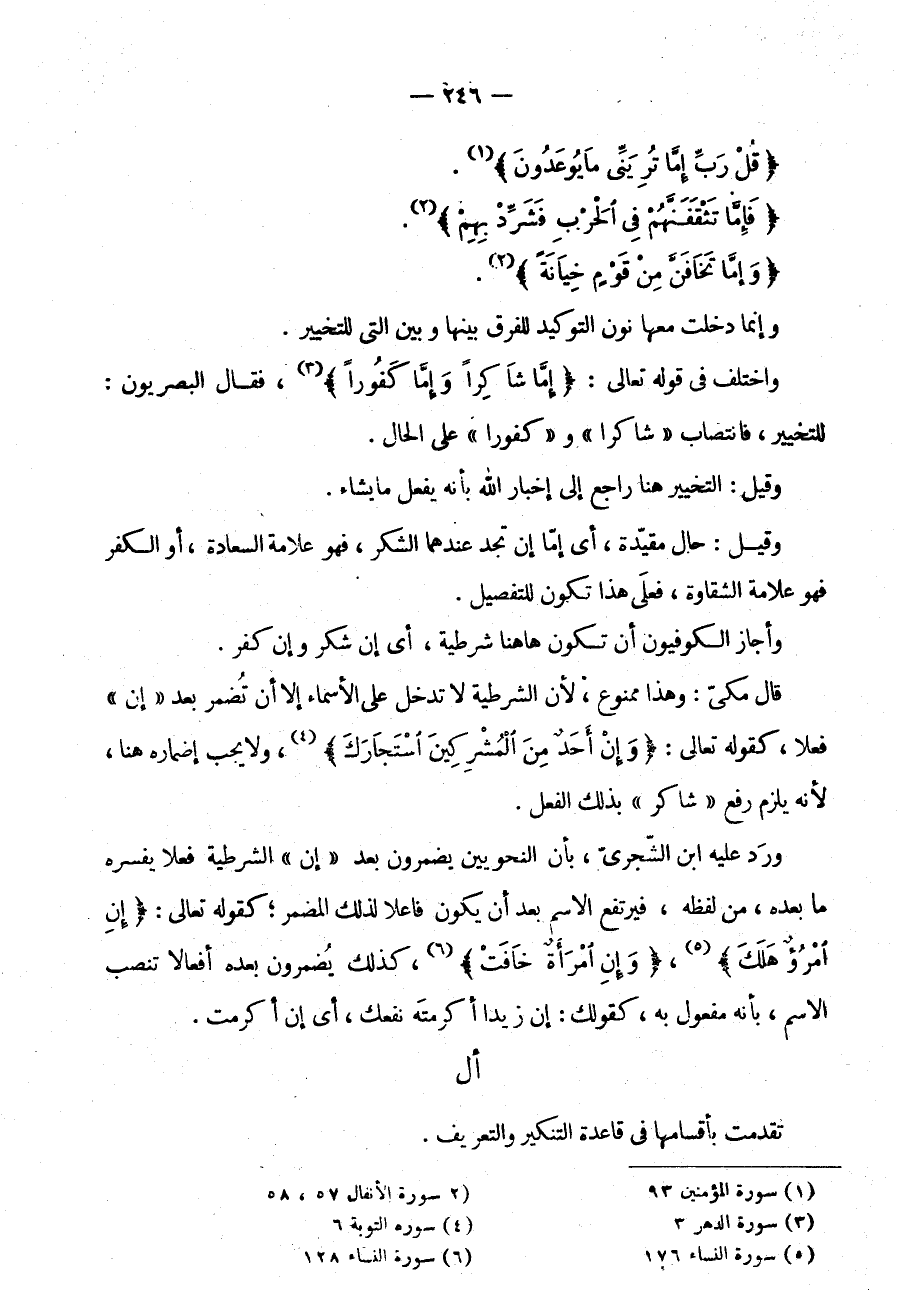 — ٢٤٦ —
﴿ قُلْ رَبِّ إِمَّا تُرِيَنِّى مَايُوعَدُونَ ﴾(١) .
﴿ فَإِمَّا تَثْقَفَنَّهُمْ فِى ٱلْحَرْبِ فَشَرِّدْ بِهِمْ ﴾(٢) .
﴿ وَإِمَّا تَخَافَنَّ مِنْ قَوْمٍ خِيَانَةً ﴾(٢) .
وإنما دخلت معها نون التوكيد للفرق بينها وبين التى للتخيير .
واختلف فى قوله تعالى : ﴿ إِمَّا شَاكِراً وَإِمَّا كَفُوراً ﴾(٣) ، فقال البصريون :
للتخيير ، فانتصاب « شاكرا » و « كفورا » على الحال .
وقيل : التخيير هنا راجع إلى إخبار الله بأنه يفعل مايشاء .
وقيل : حال مقيّدة ، أى إمّا إن تجد عندهما الشكر ، فهو علامة السعادة ، أو الكفر
فهو علامة الشقاوة ، فعلَى هذا تكون للتفصيل .
وأجاز الكوفيون أن تكون هاهنا شرطية ، أى إن شكر وإن كفر .
قال مكىّ : وهذا ممنوع ، لأن الشرطية لا تدخل على الأسماء إلا أن تُضمر بعد « إن »
فعلا ، كقوله تعالى : ﴿ وَإِنْ أَحَدٌ مِنَ ٱلْمُشْرِكِينَ ٱسْتَجَارَكَ ﴾(٤) ، ولايجب إضماره هنا ،
لأنه يلزم رفع « شاكر » بذلك الفعل .
ورَد عليه ابن الشّجرىّ ، بأن النحويين يضمرون بعد « إن » الشرطية فعلا يفسره
ما بعده ، من لفظه ، فيرتفع الاسم بعد أن يكون فاعلا لذلك المضمر ؛ كقوله تعالى : ﴿ إِنِ
ٱمْرُؤٌ هَلَكَ ﴾(٥) ، ﴿ وَإِنِ ٱمْرَأَةٌ خَافَتْ ﴾(٦) ، كذلك يُضمرون بعده أفعالا تنصب
الاسم ، بأنه مفعول به ، كقولك : إن زيدا أكرمتَه نفعك ، أى إن أكرمت .
أل
تقدمت بأقسامها فى قاعدة التنكير والتعريف .
(١) سورة المؤمنين ٩٣
(٢ سورة الأنفال ٥٧ ، ٥٨
(٣) سورة الدهر ٣
(٤) سوره التوبة ٦
(٥) سورة النساء ١٧٦
(٦) سورة النساء ١٢٨